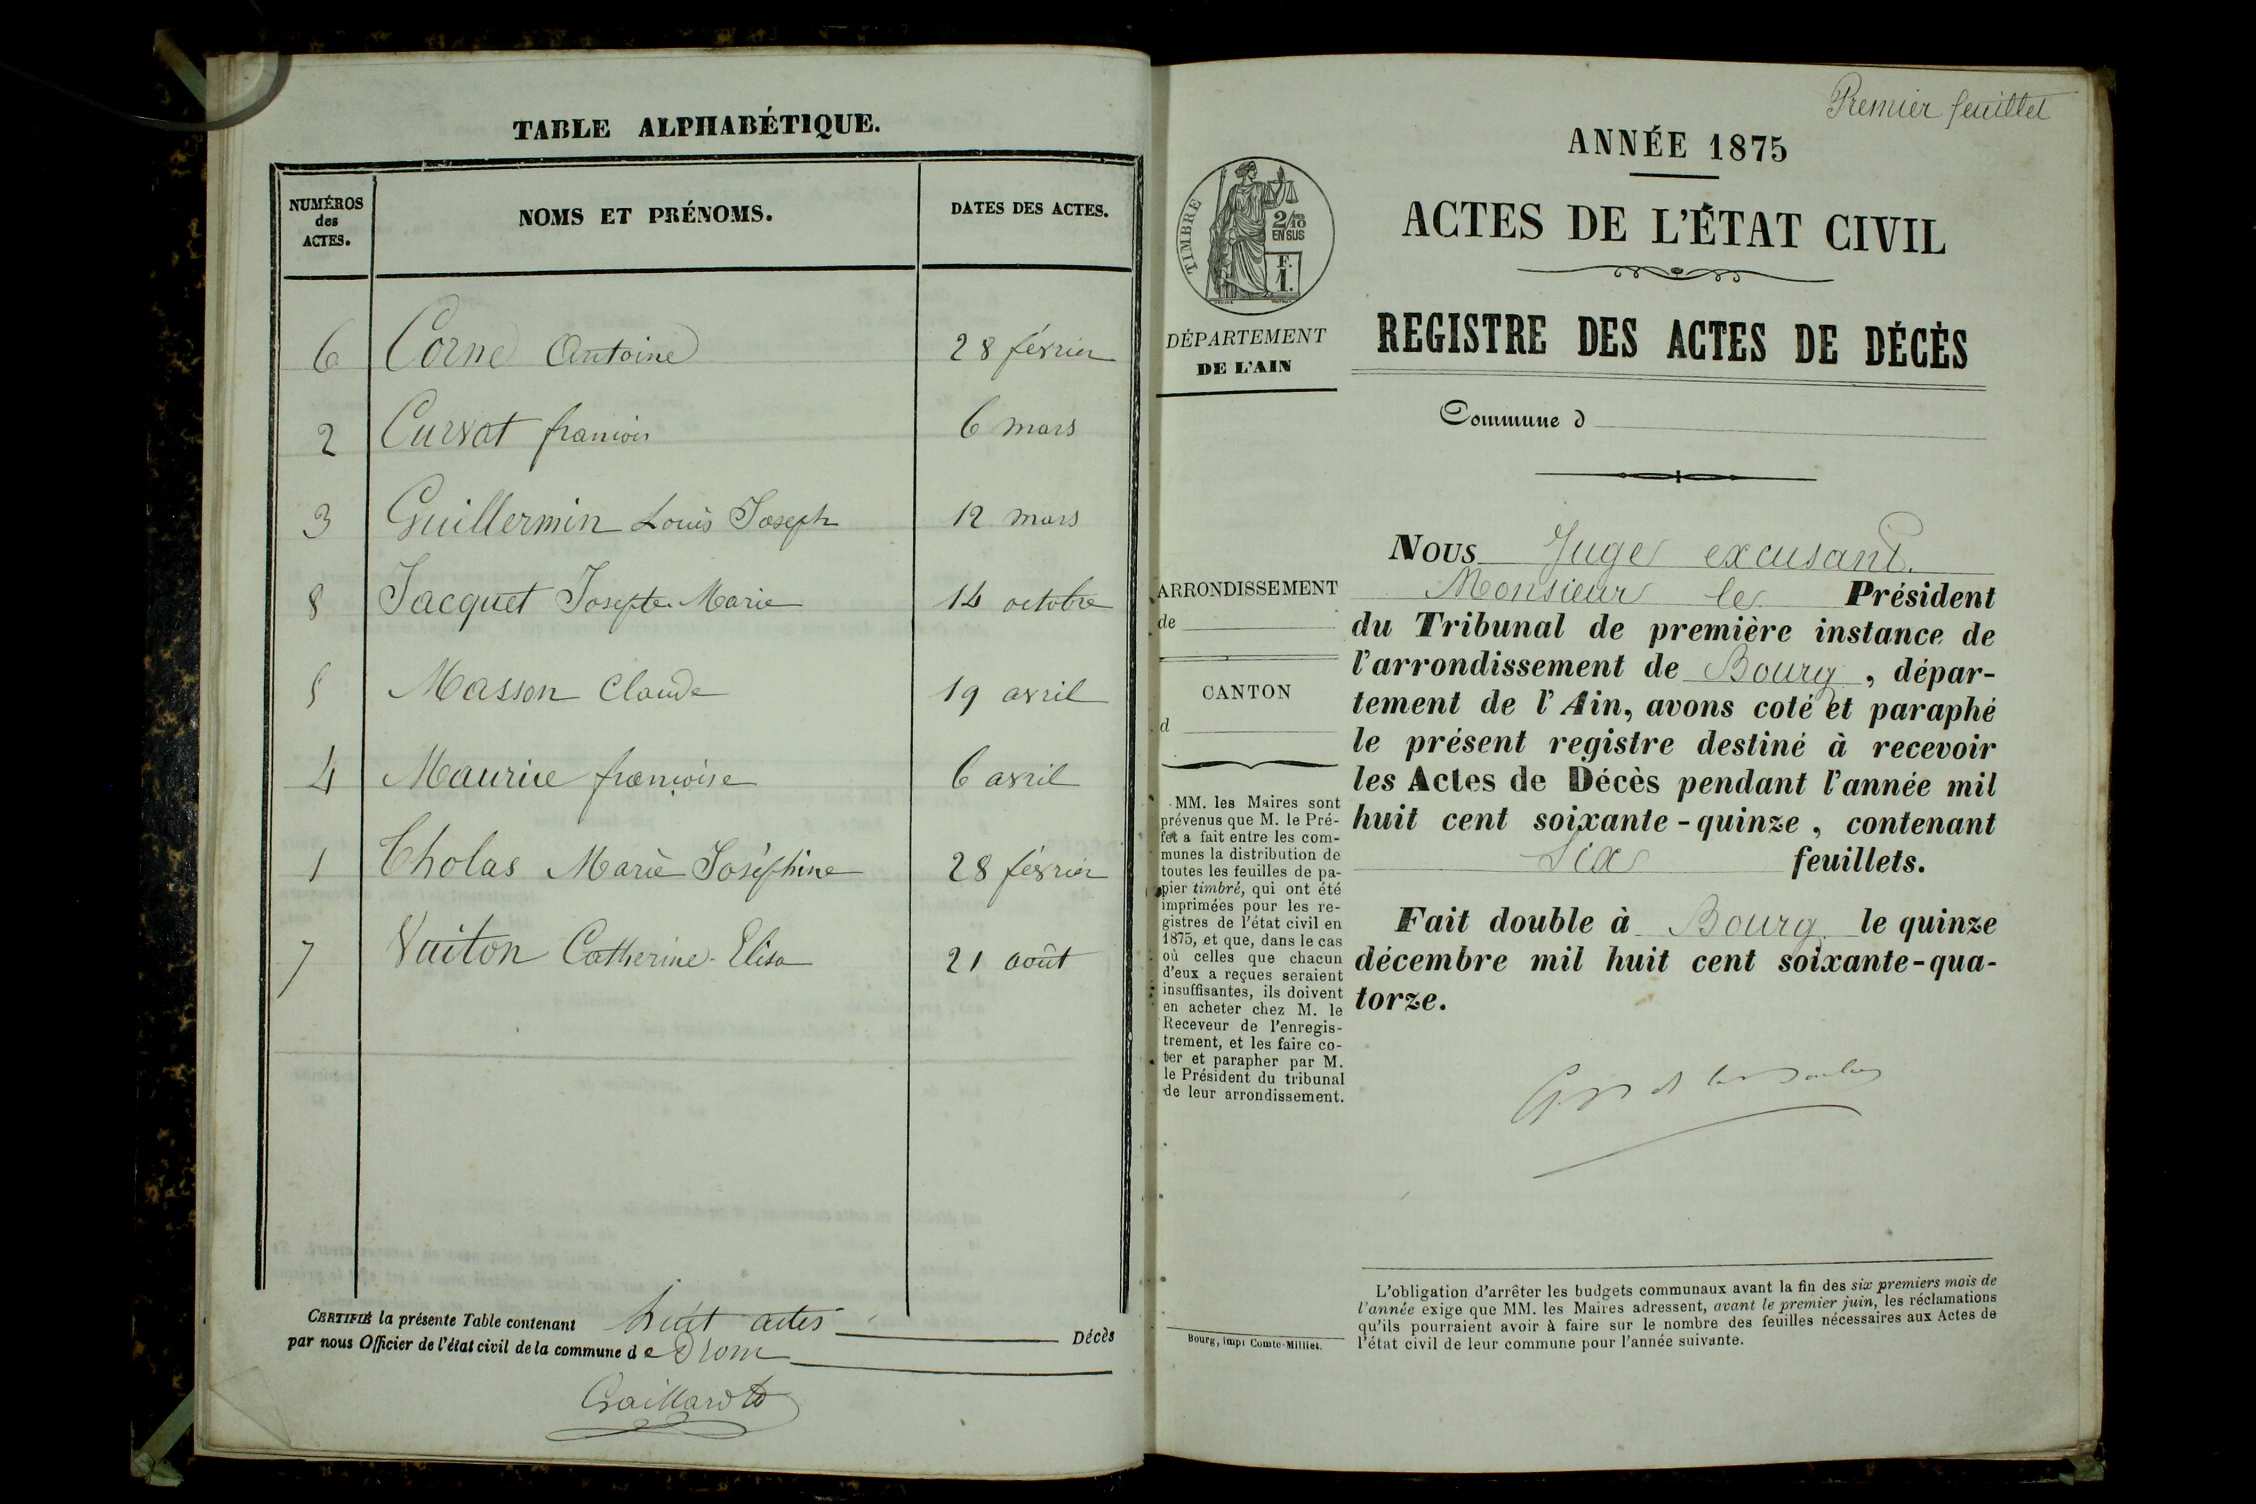 TABLE ALPHABÉTIQUE.
NUMÉROS
des
ACTES.
NOMS ET PRÉNOMS.
DATES DES ACTES.
6 Corne Antoine 28 février
2 Curvat francois 6 mars
3 Guillermin Louis Joseph 12 mars
8 Jacquet Josephte Marie 14 octobre
5 Masson Claude 19 avril
4 Maurice françoise 6 avril
1 Tholas Marie Joséphine 28 février
7 Vuiton Catherine-Elisa 21 août
CERTIFIÉ la présente Table contenant huit actes Décès
par nous Officier de l'état civil de la commune de Drom
Gaillard
Premier feuillet
ANNÉE 1875
ACTES DE L'ÉTAT CIVIL
REGISTRE DES ACTES DE DÉCÈS
TIMBRE
2/10
EN SUS
F.
1.
DÉPARTEMENT
DE L'AIN
Commune d
ARRONDISSEMENT
de
CANTON
d
MM. les Maires sont
prévenus que M. le Pré-
fet a fait entre les com-
munes la distribution de
toutes les feuilles de pa-
pier timbré, qui ont été
imprimées pour les re-
gistres de l'état civil en
1875, et que, dans le cas
où celles que chacun
d'eux a reçues seraient
insuffisantes, ils doivent
en acheter chez M. le
Receveur de l'enregis-
trement, et les faire co-
ter et parapher par M.
le Président du tribunal
de leur arrondissement.
Bourg, imp. Comte-Milliet.
Nous Juge excusant
Monsieur le Président
du Tribunal de première instance de
l'arrondissement de Bourg, dépar-
tement de l'Ain, avons coté et paraphé
le présent registre destiné à recevoir
les Actes de Décès pendant l'année mil
huit cent soixante-quinze, contenant
Six feuillets.
Fait double à Bourg le quinze
décembre mil huit cent soixante-qua-
torze.
L'obligation d'arrêter les budgets communaux avant la fin des six premiers mois de
l'année exige que MM. les Maires adressent, avant le premier juin, les réclamations
qu'ils pourraient avoir à faire sur le nombre des feuilles nécessaires aux Actes de
l'état civil de leur commune pour l'année suivante.